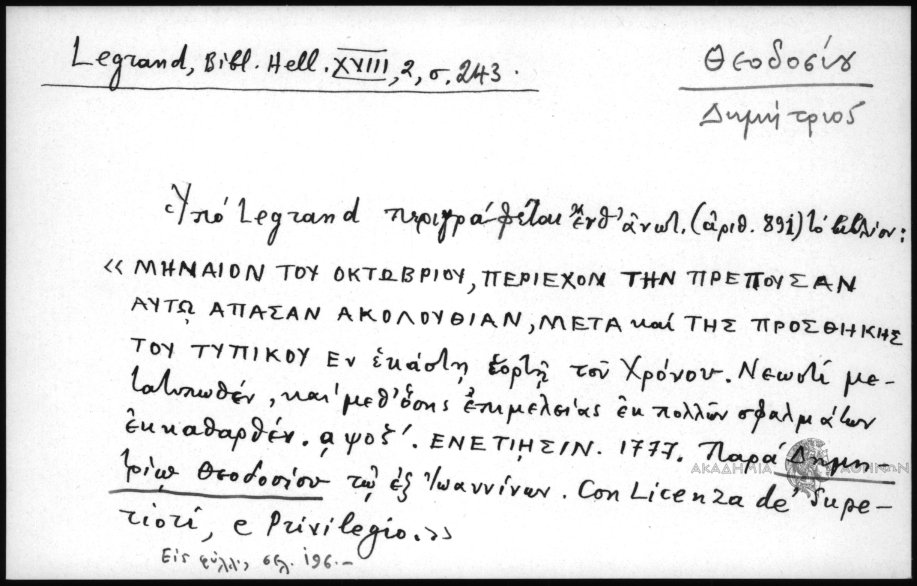 Legrand, Bibl. Hell. XVIII, 2, σ. 243.
Θεοδοσίου
Δημήτριος
Ὑπό Legrand περιγράφεται ἐνθ' ἀνωτ. (ἀριθ. 891) τό βιβλίον:
« ΜΗΝΑΙΟΝ ΤΟΥ ΟΚΤΩΒΡΙΟΥ, ΠΕΡΙΕΧΟΝ ΤΗΝ ΠΡΕΠΟΥΣΑΝ
ΑΥΤῼ ΑΠΑΣΑΝ ΑΚΟΛΟΥΘΙΑΝ, ΜΕΤΑ καί ΤΗΣ ΠΡΟΣΘΗΚΗΣ
ΤΟΥ ΤΥΠΙΚΟΥ Εν ἑκάστῃ ἑορτῇ τοῦ Χρόνου. Νεωστί με-
τατυπωθέν, καί μεθ' ὅσης ἐπιμελείας ἐκ πολλῶν σφαλμάτων
ἐκκαθαρθέν. αψοζ'. ΕΝΕΤΙΗΣΙΝ. 1777. Παρά Δημη-
τρίῳ Θεοδοσίου τῷ ἐξ Ἰωαννίνων. Con Licenza de' Supe-
riori, e Privilegio.»
Εἰς φύλλ., σελ. 196.-
ΑΚΑΔΗΜΙΑ ΑΘΗΝΩΝ